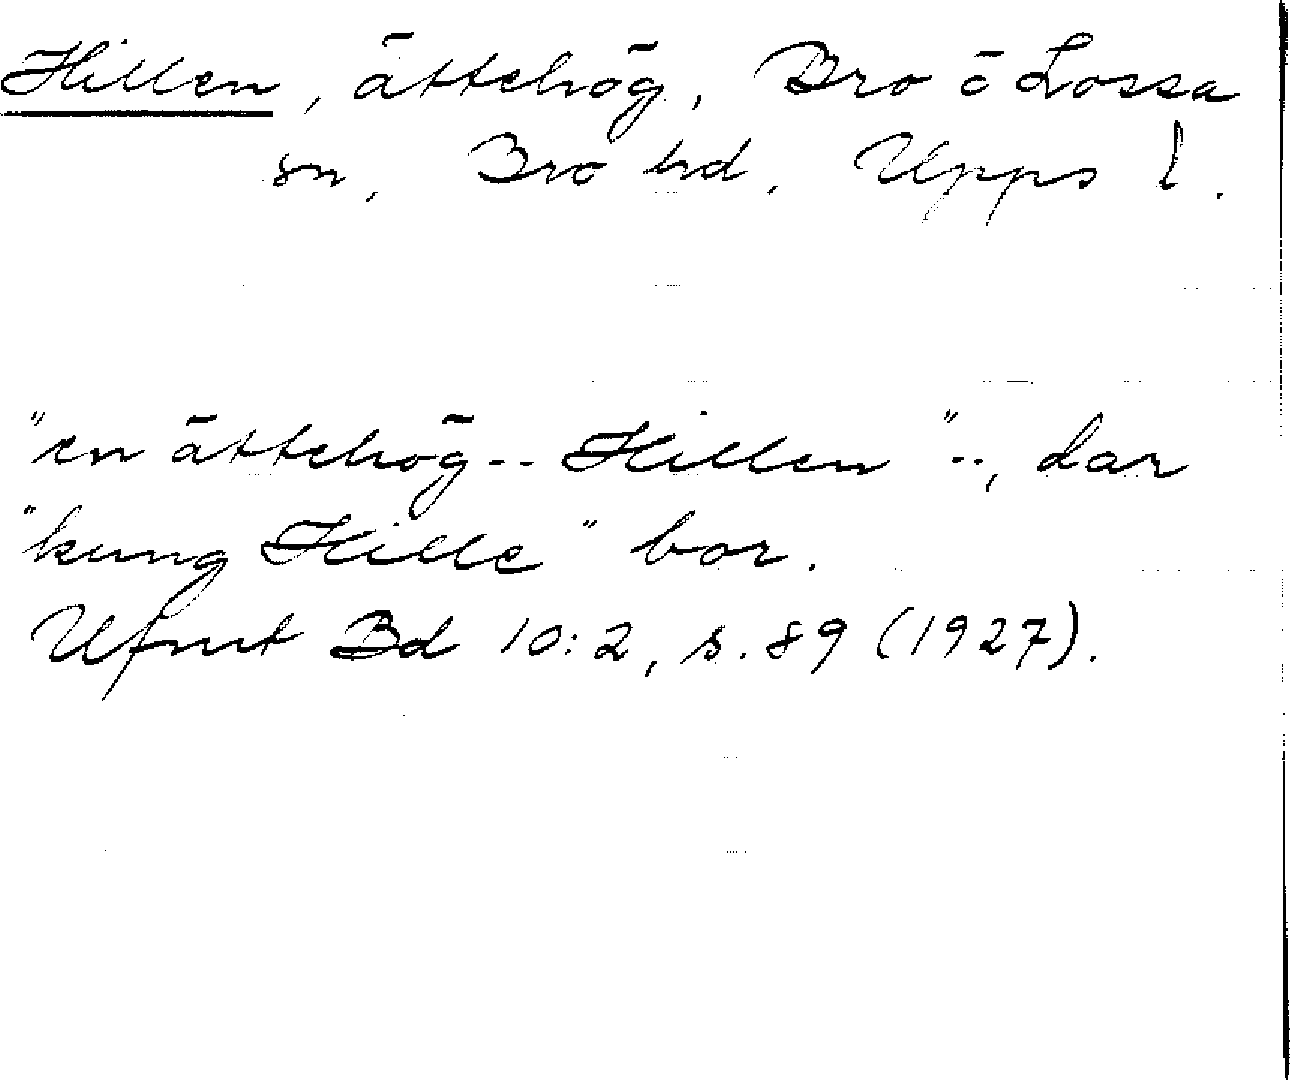 Hillen, ättehög, Bro ö Lossa
sn, Bro hd, Upps l.
"en ättehög -- Hillen" --, där
"kung Hille" bor.
Ufmt Bd 10:2, s. 89 (1927).